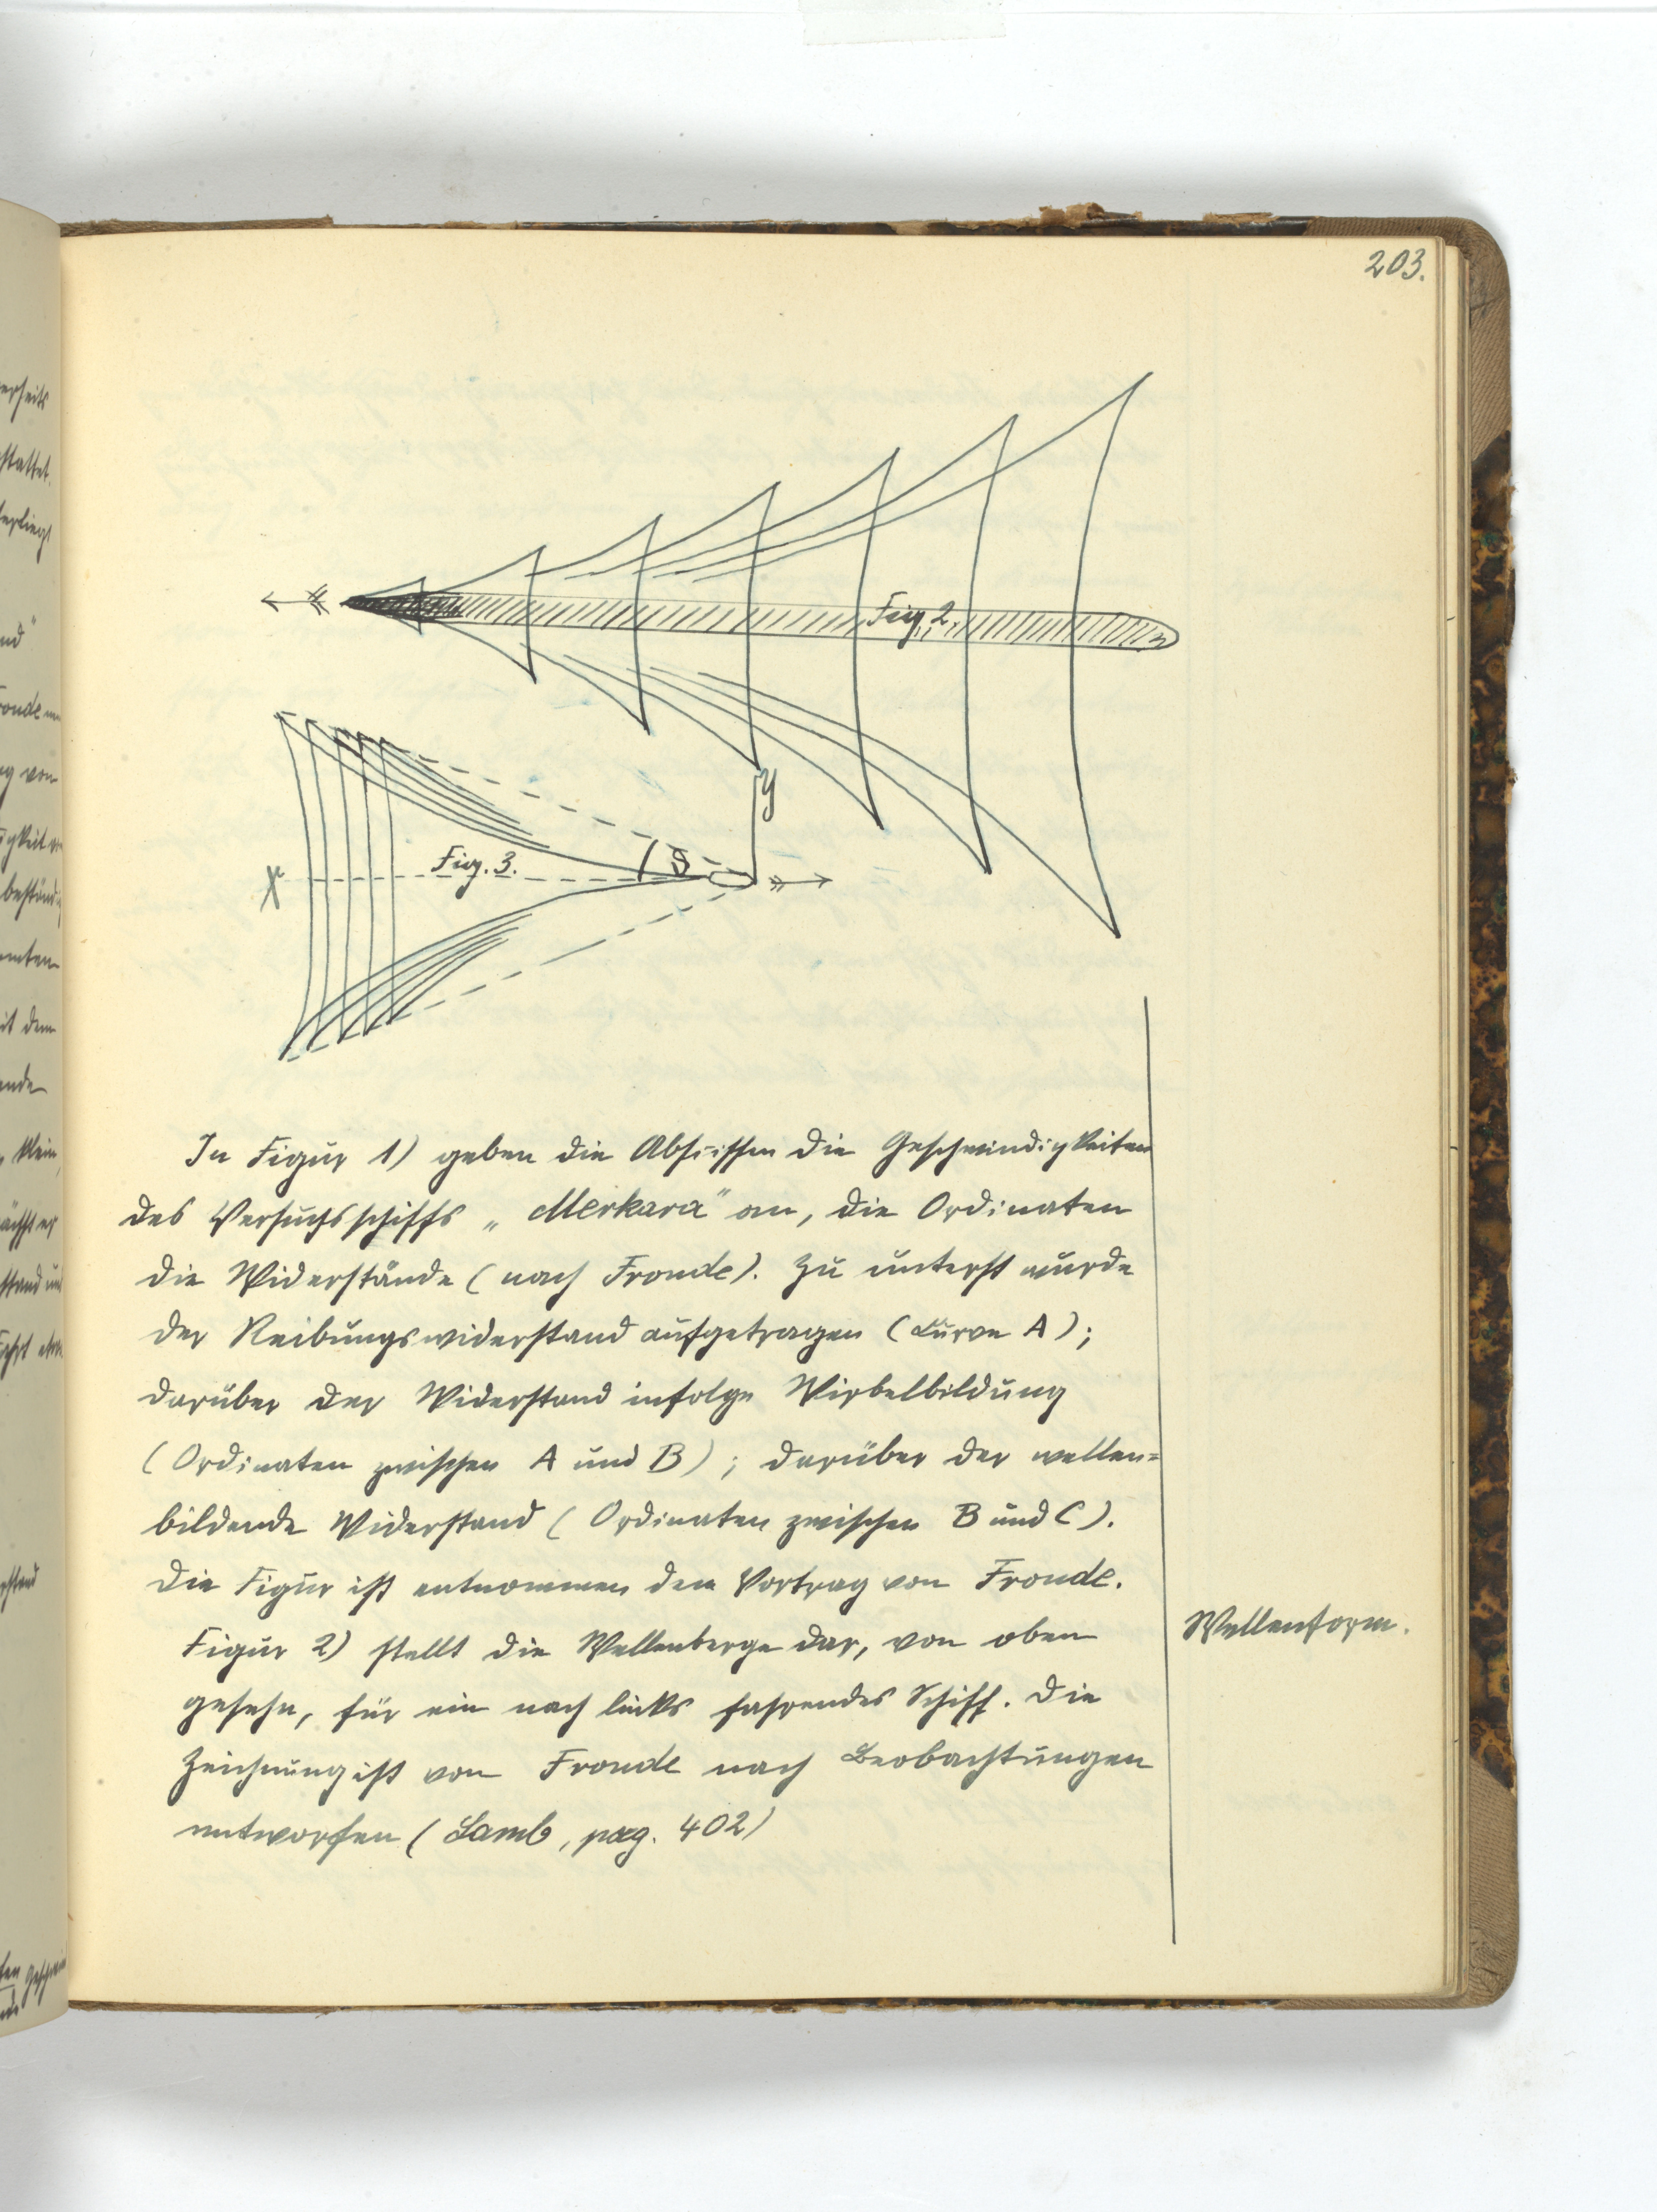 203.
Fig. 2.
y
Fig. 3.
ϑ
X
In Figur 1) geben die Absissen die Geschwindigkeiten
des Versuchsschiffs „Merkara" an, die Ordinaten
die Widerstände (nach Froude). Zu unterst wurde
der Reibungswiderstand aufgetragen (Curve A);
darüber der Widerstand infolge Wirbelbildung
(Ordinaten zwischen A und B); darüber der wellen=
bildende Widerstand (Ordinaten zwischen B und C).
Die Figur ist entnommen dem Vortrag von Froude.
Figur 2) stellt die Wellenberge dar, von oben
Wellenform.
gesehn, für ein nach links fahrendes Schiff. Die
Zeichnung ist von Froude nach Beobachtungen
entworfen (Lamb, pag. 402)